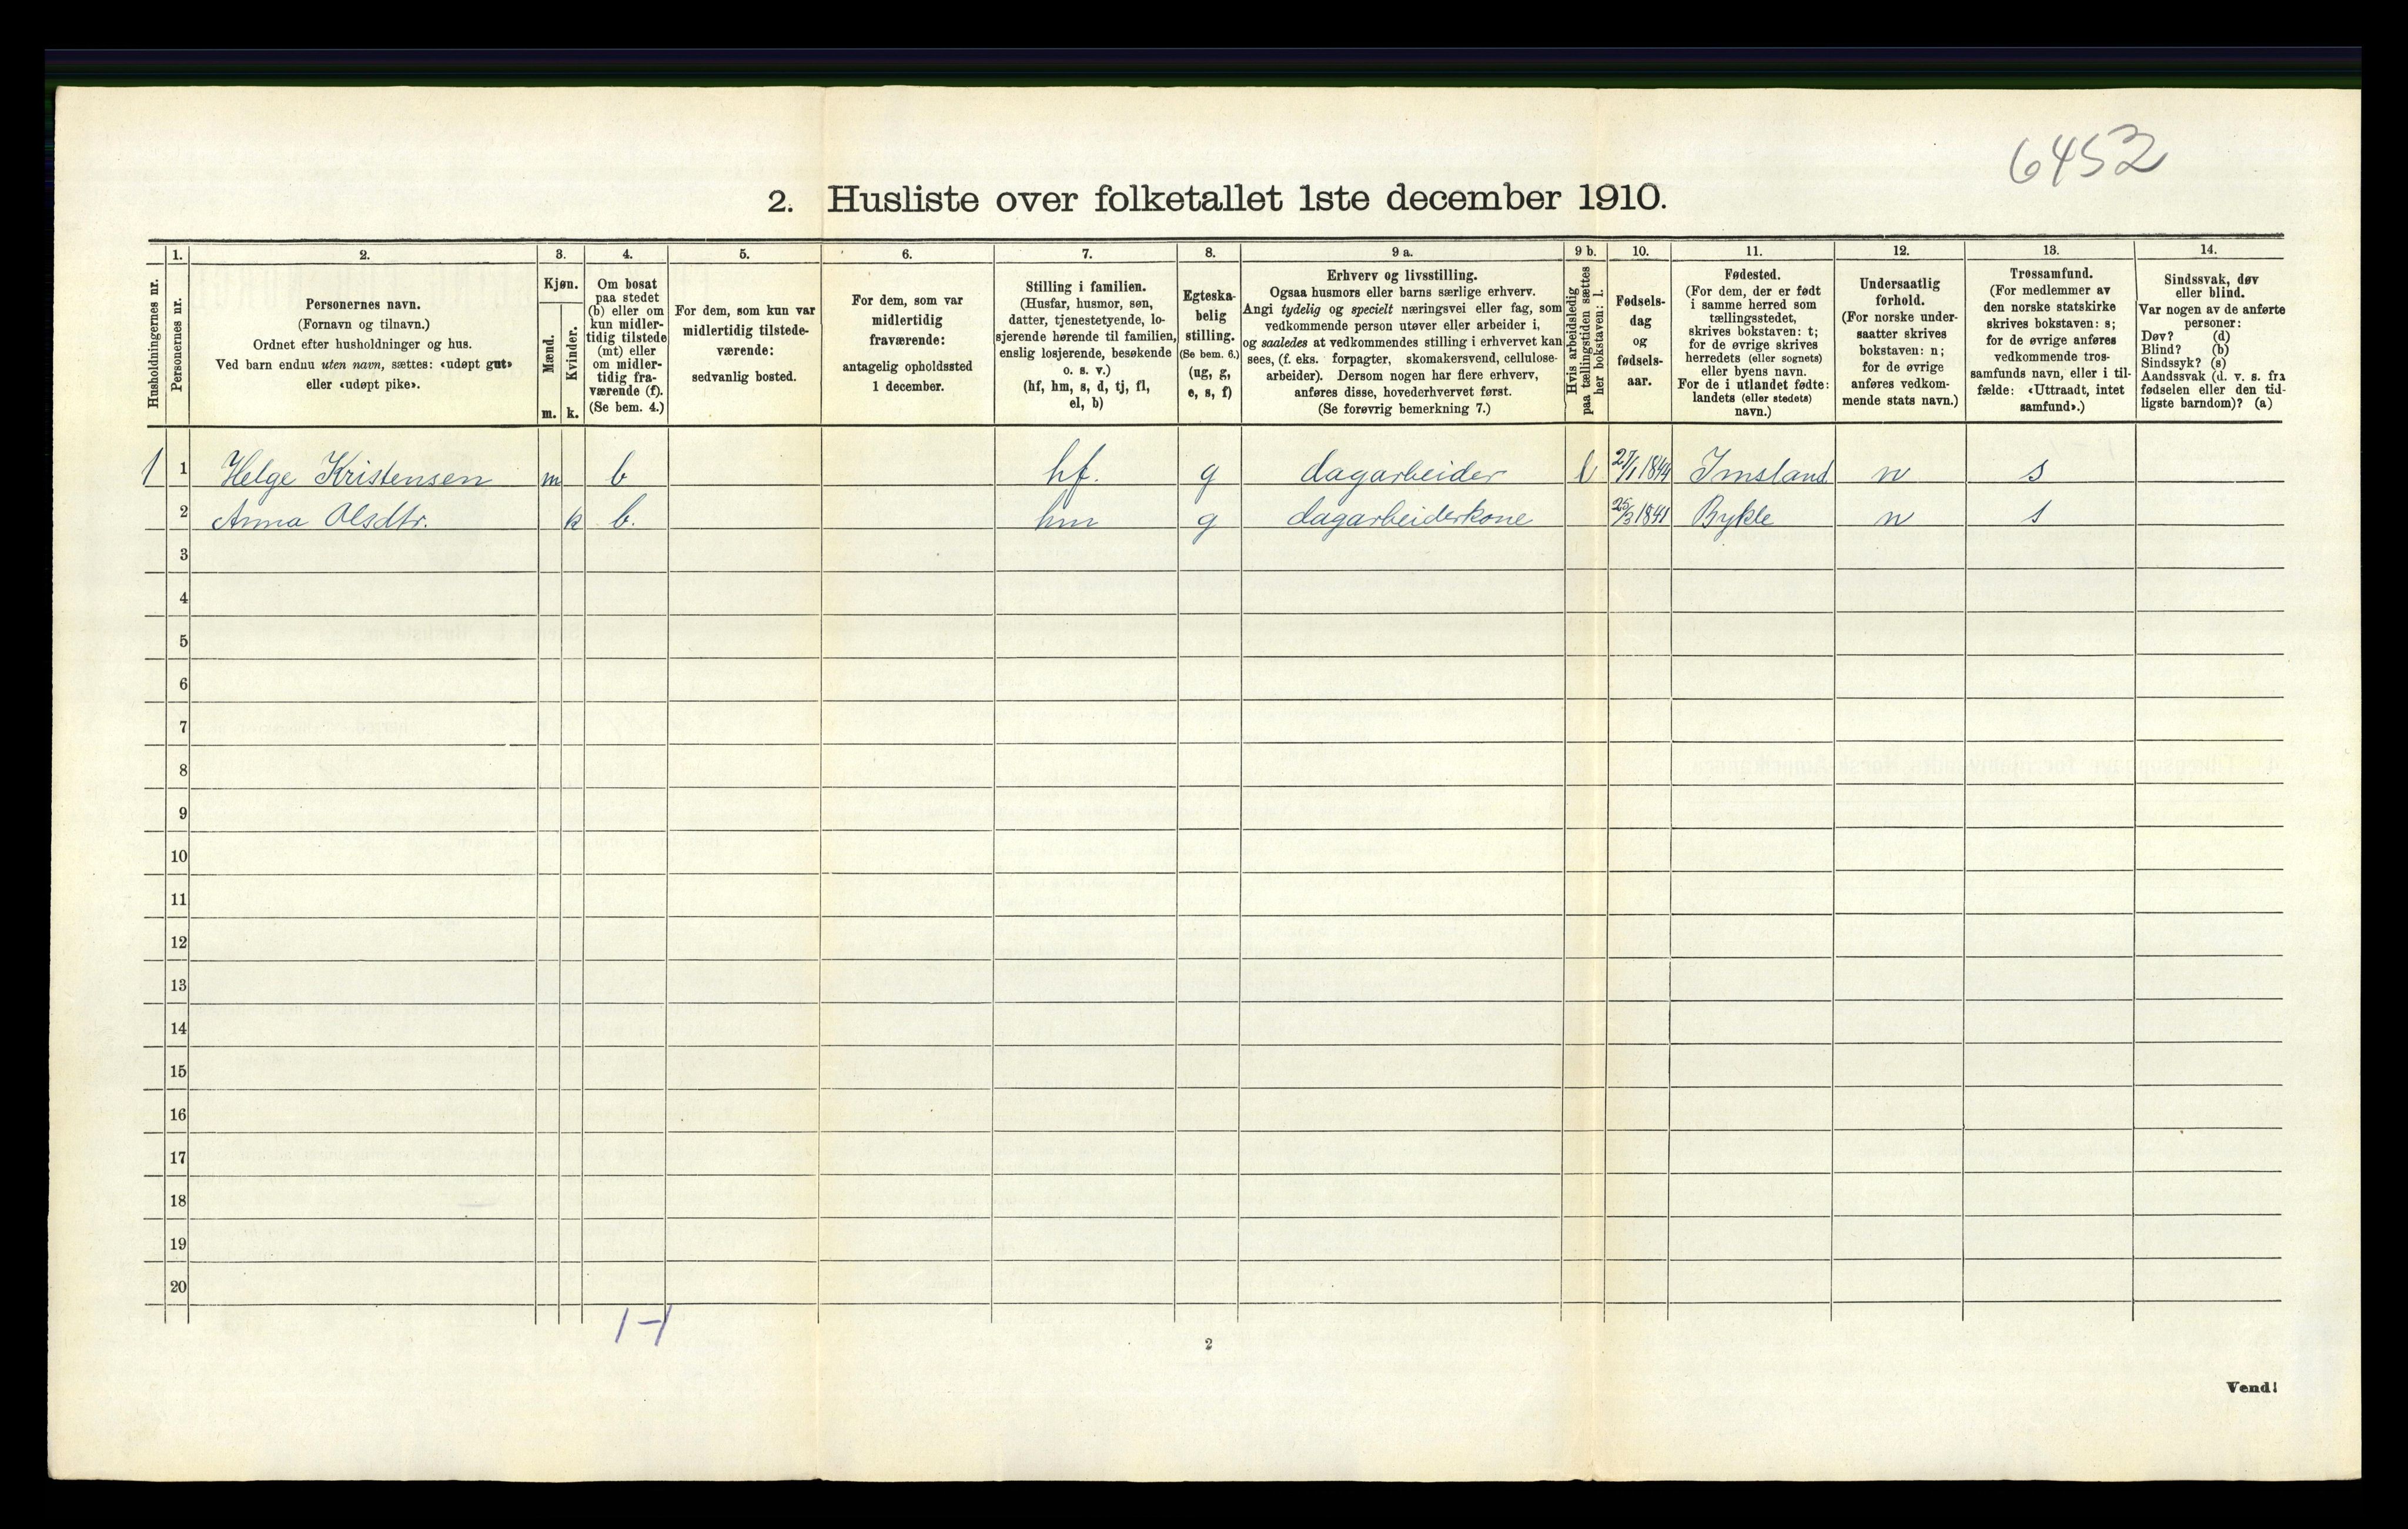 6452
2. Husliste over folketallet 1ste december 1910.
Husholdningernes nr.
1.
Personernes nr.
2.
Personernes navn.
(Fornavn og tilnavn.)
Ordnet efter husholdninger og hus.
Ved barn endnu uten navn, sættes: «udøpt gut»
eller «udøpt pike».
3.
Kjøn.
Mænd.
Kvinder.
m. k.
4.
Om bosat
paa stedet
(b) eller om
kun midler-
tidig tilstede
(mt) eller
om midler-
tidig fra-
værende (f).
(Se bem. 4.)
5.
For dem, som kun var
midlertidig tilstede-
værende:
sedvanlig bosted.
6.
For dem, som var
midlertidig
fraværende:
antagelig opholdssted
1 december.
7.
Stilling i familien.
(Husfar, husmor, søn,
datter, tjenestetyende, lo-
sjerende hørende til familien,
enslig losjerende, besøkende
o. s. v.)
(hf, hm, s, d, tj, fl,
el, b)
8.
Egteska-
belig
stilling.
(Se bem. 6.)
(ug, g,
e, s, f)
9 a.
Erhverv og livsstilling.
Ogsaa husmors eller barns særlige erhverv.
Angi tydelig og specielt næringsvei eller fag, som
vedkommende person utøver eller arbeider i,
og saaledes at vedkommendes stilling i erhvervet kan
sees, (f. eks. forpagter, skomakersvend, cellulose-
arbeider). Dersom nogen har flere erhverv,
anføres disse, hovederhvervet først.
(Se forøvrig bemerkning 7.)
9 b.
Hvis arbeidsledig
paa tællingstiden sættes
her bokstaven: l.
10.
Fødsels-
dag
og
fødsels-
aar.
11.
Fødested.
(For dem, der er født
i samme herred som
tællingsstedet,
skrives bokstaven: t;
for de øvrige skrives
herredets (eller sognets)
eller byens navn.
For de i utlandet fødte:
landets (eller stedets)
navn.)
12.
Undersaatlig
forhold.
(For norske under-
saatter skrives
bokstaven: n;
for de øvrige
anføres vedkom-
mende stats navn.)
13.
Trossamfund.
(For medlemmer av
den norske statskirke
skrives bokstaven: s;
for de øvrige anføres
vedkommende tros-
samfunds navn, eller i til-
fælde: «Uttraadt, intet
samfund».)
14.
Sindssvak, døv
eller blind.
Var nogen av de anførte
personer:
Døv? (d)
Blind? (b)
Sindssyk? (s)
Aandssvak (d. v. s. fra
fødselen eller den tid-
ligste barndom)? (a)
1 1 Helge Kristensen m b hf. g dagarbeider l 27/1 1844 Imsland n s
2 Anna Olsdtr. k b. hm g dagarbeiderkone 25/3 1841 Bykle n s
3
4
5
6
7
8
9
10
11
12
13
14
15
16
17
18
19
20
1-1
2
Vend!